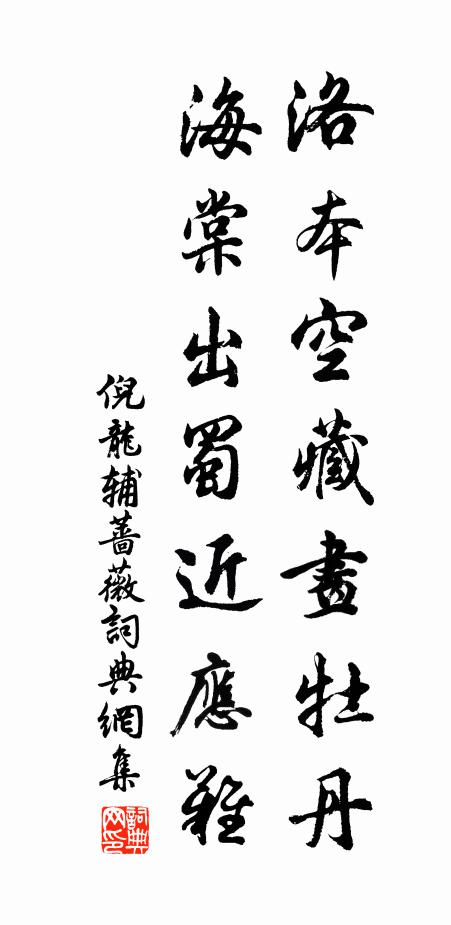 洛本空藏畫牡丹
海棠出蜀近應難
倪龍辅薔薇詞典網集
詞典网印